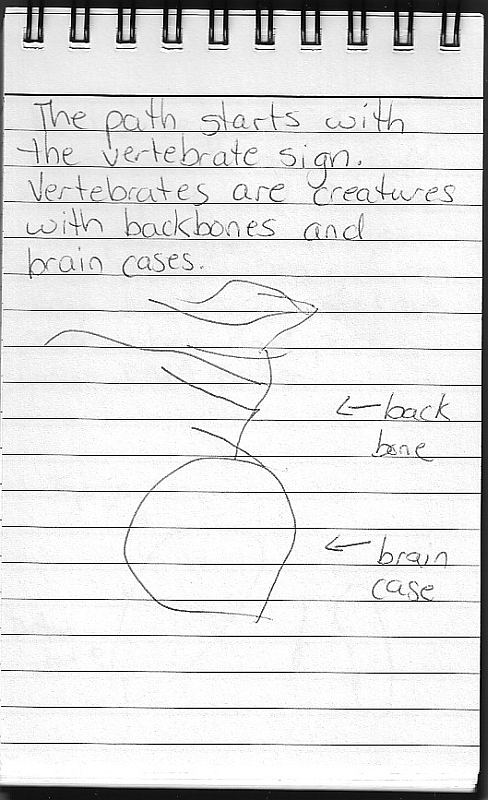 The path starts with
the vertebrate sign.
Vertebrates are creatures
with backbones and
brain cases.
← back
bone
← brain
case